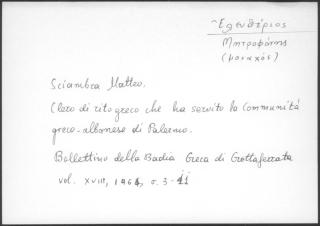 Ἐλευθέριος
Μητροφάνης
(μοναχός)
Sciambra Matteo.
Clero di rito greco che ha servito la Comunità
greco-albanese di Palermo.
Bollettino della Badia Greca di Grottaferrata
vol. XVIII, 1964, σ. 3-